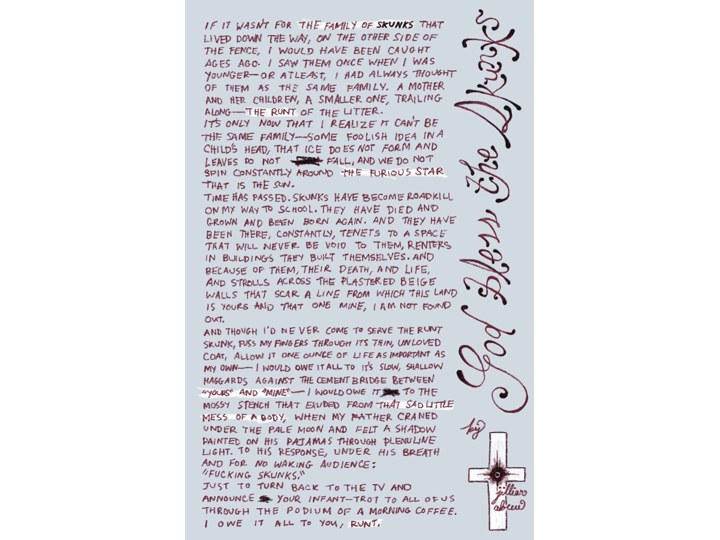 IF IT WASN'T FOR THE FAMILY OF SKUNKS THAT
LIVED DOWN THE WAY, ON THE OTHER SIDE OF
THE FENCE, I WOULD HAVE BEEN CAUGHT
AGES AGO. I SAW THEM ONCE WHEN I WAS
YOUNGER—OR ATLEAST, I HAD ALWAYS THOUGHT
OF THEM AS THE SAME FAMILY. A MOTHER
AND HER CHILDREN, A SMALLER ONE, TRAILING
ALONG—THE RUNT OF THE LITTER.
IT'S ONLY NOW THAT I REALIZE IT CAN'T BE
THE SAME FAMILY—SOME FOOLISH IDEA IN A
CHILD'S HEAD, THAT ICE DOES NOT FORM AND
LEAVES DO NOT FALL, AND WE DO NOT
SPIN CONSTANTLY AROUND THE FURIOUS STAR
THAT IS THE SUN.
TIME HAS PASSED. SKUNKS HAVE BECOME ROADKILL
ON MY WAY TO SCHOOL. THEY HAVE DIED AND
GROWN AND BEEN BORN AGAIN. AND THEY HAVE
BEEN THERE, CONSTANTLY, TENETS TO A SPACE
THAT WILL NEVER BE VOID TO THEM, RENTERS
IN BUILDINGS THEY BUILT THEMSELVES. AND
BECAUSE OF THEM, THEIR DEATH, AND LIFE,
AND STROLLS ACROSS THE PLASTERED BEIGE
WALLS THAT SCAR A LINE FROM WHICH THIS LAND
IS YOURS AND THAT ONE MINE, I AM NOT FOUND
OUT.
AND THOUGH I'D NEVER COME TO SERVE THE RUNT
SKUNK, FUSS MY FINGERS THROUGH ITS THIN, UNLOVED
COAT, ALLOW IT ONE OUNCE OF LIFE AS IMPORTANT AS
MY OWN—I WOULD OWE IT ALL TO IT'S SLOW, SHALLOW
HAGGARDS AGAINST THE CEMENT BRIDGE BETWEEN
"YOURS" AND "MINE"—I WOULD OWE IT TO THE
MOSSY STENCH THAT EXUDED FROM THAT SAD LITTLE
MESS OF A BODY, WHEN MY FATHER CRANED
UNDER THE PALE MOON AND FELT A SHADOW
PAINTED ON HIS PAJAMAS THROUGH PLENILUNE
LIGHT. TO HIS RESPONSE, UNDER HIS BREATH
AND FOR NO WAKING AUDIENCE:
"FUCKING SKUNKS."
JUST TO TURN BACK TO THE TV AND
ANNOUNCE YOUR INFANT-TROT TO ALL OF US
THROUGH THE PODIUM OF A MORNING COFFEE.
I OWE IT ALL TO YOU, RUNT.
God Bless the Skunks
by